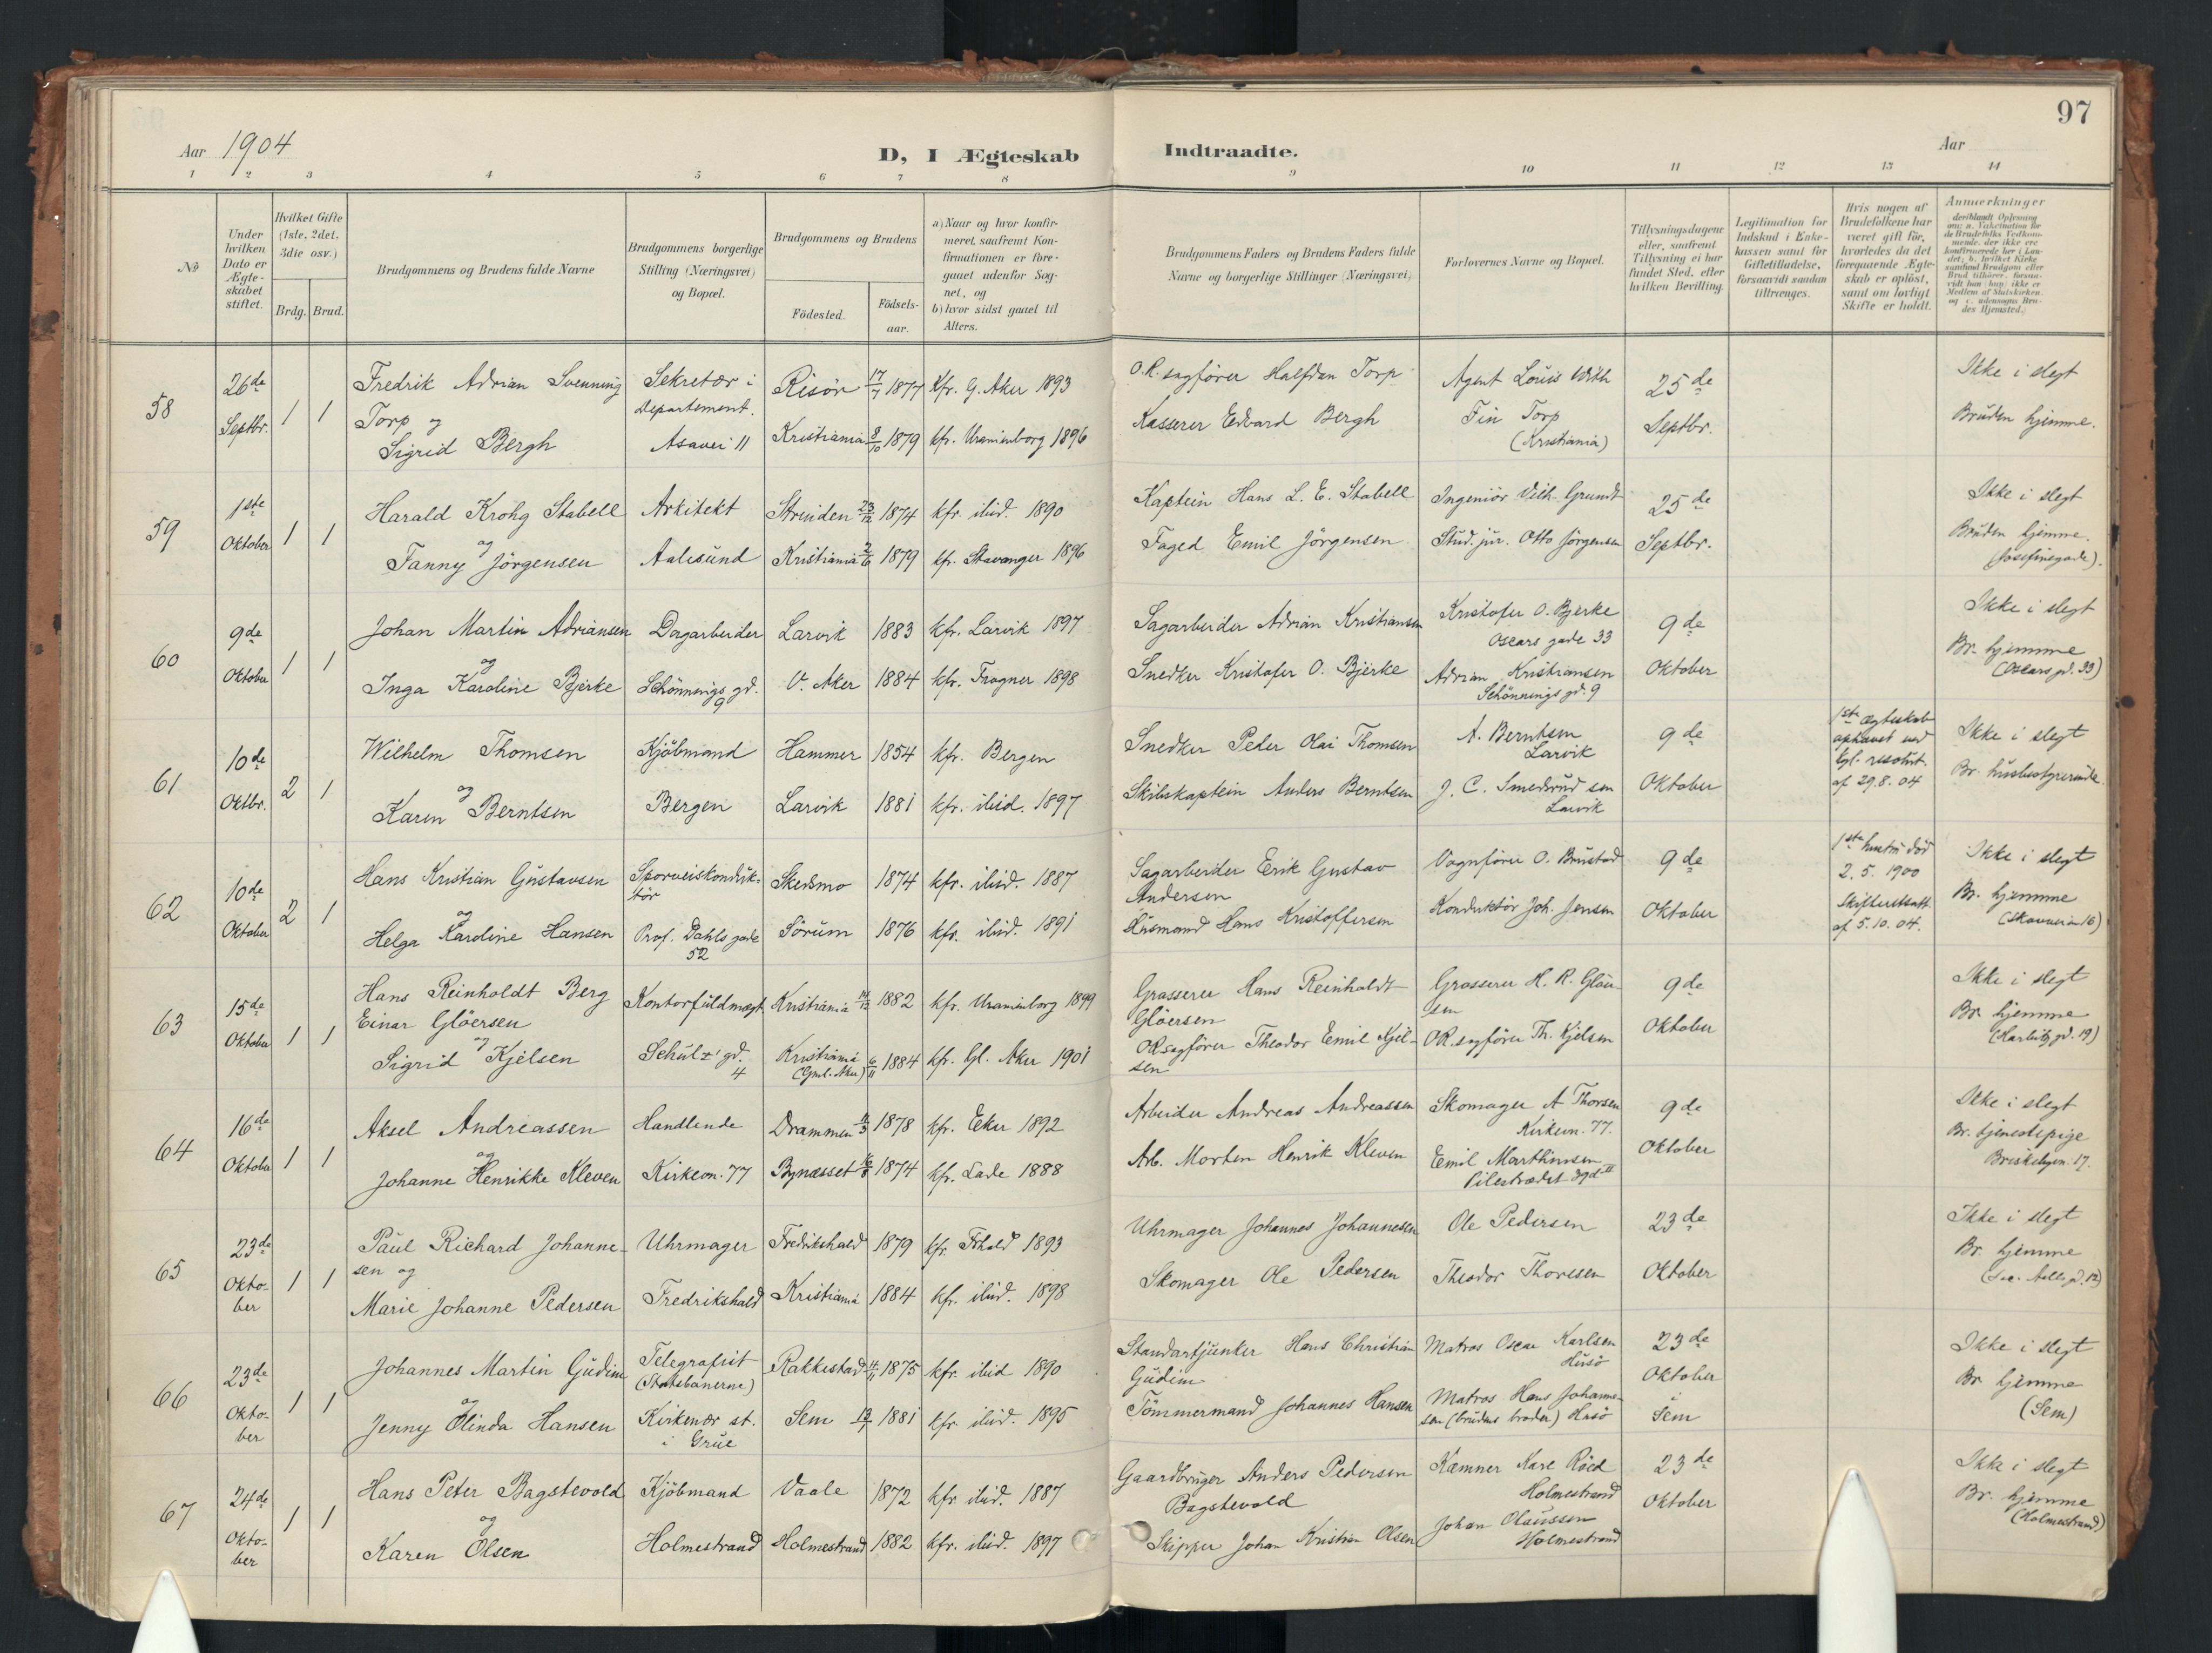 97
Aar 1904
D, I Ægteskab Indtraadte.
Aar
1 2 3 4 5 6 7 8 9 10 11 12 13 14
No
Under hvilken Dato er Ægteskabet stiftet.
Hvilket Gifte (1ste, 2det, 3die osv.)
Brdg. Brud.
Brudgommens og Brudens fulde Navne
Brudgommens borgerlige Stilling (Næringsvei) og Bopæl.
Brudgommens og Brudens
Födested.
Födsels-aar.
a) Naar og hvor konfirmeret, saafremt Konfirmationen er foregaaet udenfor Sognet, og
b) hvor sidst gaaet til Alters.
Brudgommens Faders og Brudens Faders fulde Navne og borgerlige Stillinger (Næringsvei)
Forlovernes Navne og Bopæl.
Tillysningsdagene eller, saafremt Tillysning ei har fundet Sted, efter hvilken Bevilling.
Legitimation for Indskud i Enkekassen samt for Giftetilladelse, forsaavidt saadan tiltrænges.
Hvis nogen af Brudefolkene har været gift för, hvorledes da det foregaaende Ægteskab er oplöst, samt om lovligt Skifte er holdt.
Anmerkninger
58 26de Septbr. 1 1
Fredrik Adrian Svenning
Torp og
Sigrid Bergh
Sekretær i
Departement.
Asavei 11
Risör 17/7 1877 kfr. G. Aker 1893
Kristiania 8/10 1879 kfr. Uranienborg 1896
O.R. sagförer Halfdan Torp
Kasserer Edvard Bergh
Agent Louis With
Fin Torp
(Kristiania)
25de
Septbr.
Ikke i slegt
Bruden hjemme.
59 1ste Oktober 1 1
Harald Krohg Stabell
og
Fanny Jörgensen
Arkitekt
Aalesund
Strinden 23/12 1874 kfr. ibid. 1890
Kristiania 2/6 1879 kfr. Stavanger 1896
Kaptein Hans L. E. Stabell
Foged Emil Jörgensen
Ingeniör Vilh. Grundt
Stud. jur. Otto Jörgensen
25de
Septbr.
Ikke i slegt
Bruden hjemme.
(Josefinegade).
60 9de Oktober 1 1
Johan Martin Adriansen
og
Inga Karoline Bjerke
Dagarbeider
Schönnings gd.
9
Larvik 1883 kfr. Larvik 1897
V. Aker 1884 kfr. Frogner 1898
Sagarbeider Adrian Kristiansen
Snedker Kristofer O. Bjerke
Kristofer O. Bjerke
Oscars gade 33
Adrian Kristiansen
Schönnings gd. 9
9de
Oktober
Ikke i slegt
Br. hjemme
(Oscars gd. 33)
61 10de Oktbr. 2 1
Wilhelm Thomsen
og
Karen Berntsen
Kjöbmand
Bergen
Hammer 1854 kfr. Bergen
Larvik 1881 kfr. ibid. 1897
Snedker Peder Olai Thomsen
Skibskaptein Anders Berntsen
A. Berntsen
Larvik
J. C. Smedsrud sen
Larvik
9de
Oktober
1ste ægteskab
ophævet ved
kgl. resolut.
af 29.8.04
Ikke i slegt
Br. husbestyrerinde
62 10de Oktober 2 1
Hans Kristian Gustavsen
og
Helga Karoline Hansen
Sporveiskonduk-
tör
Prof. Dahls gade
52
Skedsmo 1874 kfr. ibid. 1887
Sörum 1876 kfr. ibid. 1891
Sagarbeider Erik Gustav
Andersen
Husmand Hans Kristoffersen
Vognförer O. Brustad
Konduktör Joh. Jensen
9de
Oktober
1ste hustru död
2.5.1900
Skifteretsatt.
af 5.10.04.
Ikke i slegt
Br. hjemme
63 15de Oktober 1 1
Hans Reinholdt Berg
Einar Glöersen
og
Sigrid Kjelsen
Kontorfuldmægt.
Schultz' gd.
4
Kristiania 1882 kfr. Uranienborg 1899
Kristiania
(Gml. Aker) 6/11 1884 kfr. Gl. Aker 1901
Grosserer Hans Reinholdt
Glöersen
ORsagförer Theodor Emil Kjel-
sen
Grosserer H. R. Glöer-
sen
ORsagförer Th. Kjelsen
9de
Oktober
Ikke i slegt
Br. hjemme
64 16de Oktober 1 1
Aksel Andreassen
og
Johanne Henrikke Kleven
Handlende
Kirkevn. 77
Drammen 1878 kfr. Eker 1892
Bynæsset 1874 kfr. Lade 1888
Arbeider Andreas Andreassen
Arb. Morten Henrik Kleven
Skomager A. Thorsen
Kirkevn. 77.
Emil Marthinsen
Pilestrædet
9de
Oktober
Ikke i slegt
Br. tjenestepige
Briskebyvn. 17.
65 23de Okto-
ber 1 1
Paul Richard Johanne-
sen og
Marie Johanne Pedersen
Uhrmager
Fredrikshald
Fredrikshald 1879 kfr. Frhald 1893
Kristiania 1884 kfr. ibid. 1898
Uhrmager Johannes Johannesen
Skomager Ole Pedersen
Ole Pedersen
Theodor Thoresen
23de
Oktober
Ikke i slegt
Br. hjemme
66 23de Okto-
ber 1 1
Johannes Martin Gudim
og
Jenny Olinda Hansen
Telegrafist
(Statsbanerne)
Kirkenær st.
i Grue
Rakkestad 1875 kfr. ibid 1890
Sem 1881 kfr. ibid. 1895
Standartjunker Hans Christian
Gudim
Tömmermand Johannes Hansen
Matros Oscar Karlsen
Husö
Matros Hans Johanne-
sen (brudens broder) Husö
23de
Oktober
i
Sem
Ikke i slegt
Br. hjemme
(Sem)
67 24de Okto-
ber 1 1
Hans Peter Bagstevold
og
Karen Olsen
Kjöbmand
Holmestrand
Vaale 1872 kfr. ibid. 1887
Holmestrand 1882 kfr. ibid. 1897
Gaardbruger Anders Pedersen
Bagstevold
Skipper Johan Kristian Olsen
Kæmner Kare Röed
Holmestrand
Johan Olaussen
Holmestrand
23de
Oktober
Ikke i slegt
Br. hjemme
(Holmestrand)